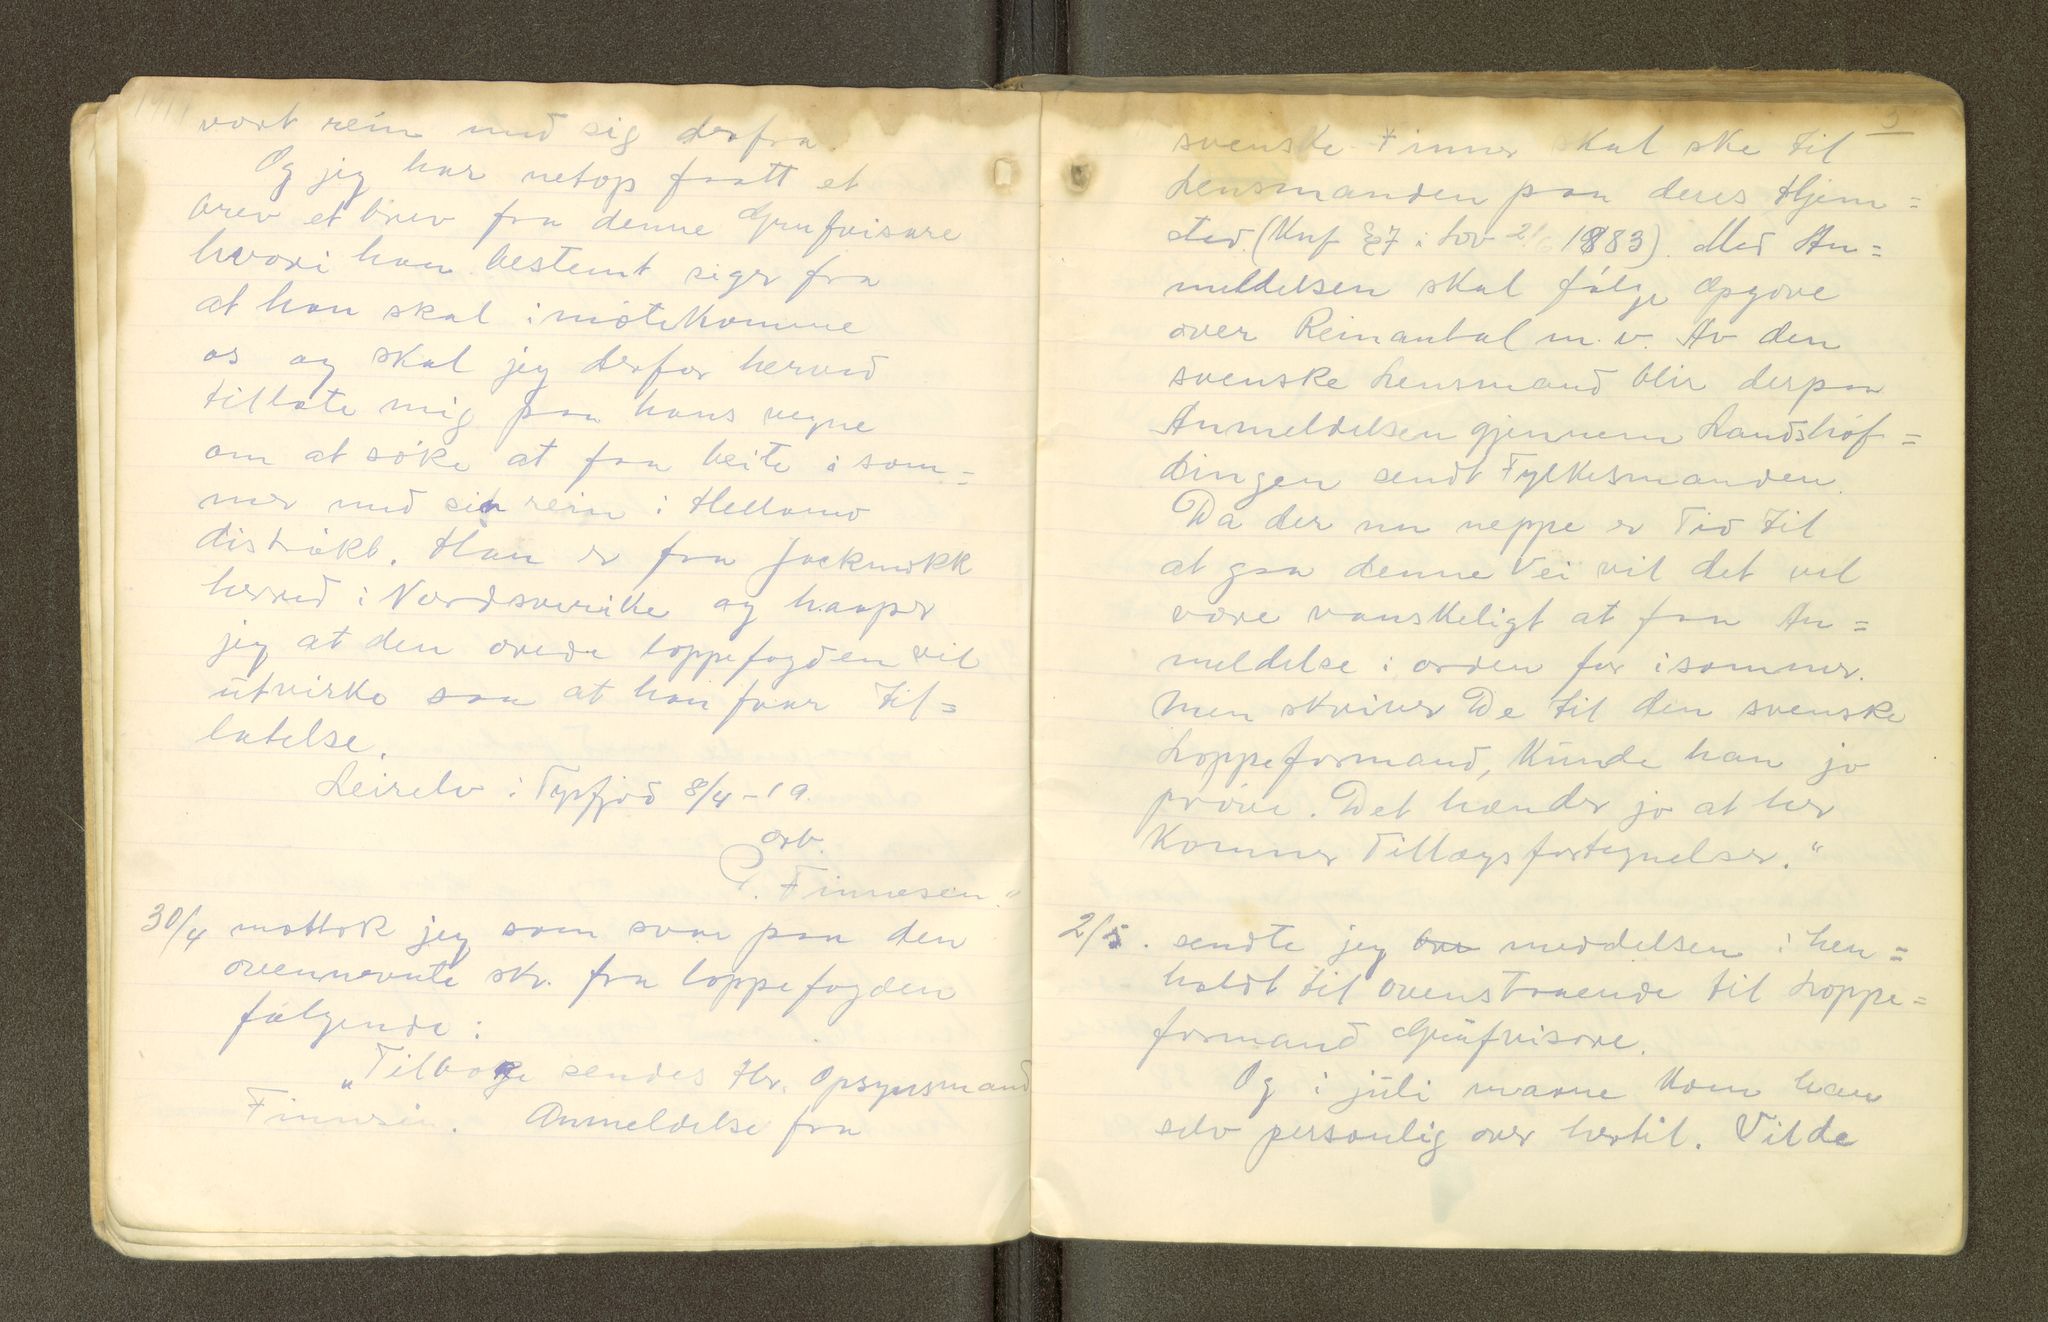 vort rein med sig derfra.
Og jeg har netop faatt et
brev et brev fra denne Grufvisare
hvori han bestemt siger fra
at han skal imøtekomme
os og skal jeg derfor herved
tillate mig paa hans vegne
om at søke at faa beite i som=
mer med sin rein i Hellamo
distrikt. Han er fra Jockmokk
herred i Nordsverike og haaper
jeg at den ærede lappefogden vil
utvirke saa at han faar til=
latelse.
Leirelv i Tysfjord 8/4-19.
ærb.
P. Finnesen."
30/4 mottok jeg som svar paa den
ovennevnte skr. fra lappefogden
følgende:
"Tilbake sendes Hr. Opsynsmand
Finnesen. Anmeldelse fra
5
svenske Finner skal ske til
Lensmanden paa deres Hjem=
sted. (Knf §7 i Lov 2/6 1883). Med An=
meldelsen skal følge Opgave
over Reinantal m.v. Av den
svenske Lensmand blir derpaa
Anmeldelsen gjennem Landshøf=
dingen sendt Fylkesmanden.
Da der nu neppe er Tid til
at gaa denne Vei vil det vel
være vanskeligt at faa An=
meldelse i orden for isommer.
Men skriver De til den svenske
Lappeformand, kunde han jo
prøve. Det hænder jo at her
kommer Tillægsfortegnelser."
2/5. sendte jeg meddelsen i hen=
holdt til ovenstaaende til Lappe=
formand Grufvisare.
Og i juli maane kom han
selv personlig over hertil. Vilde